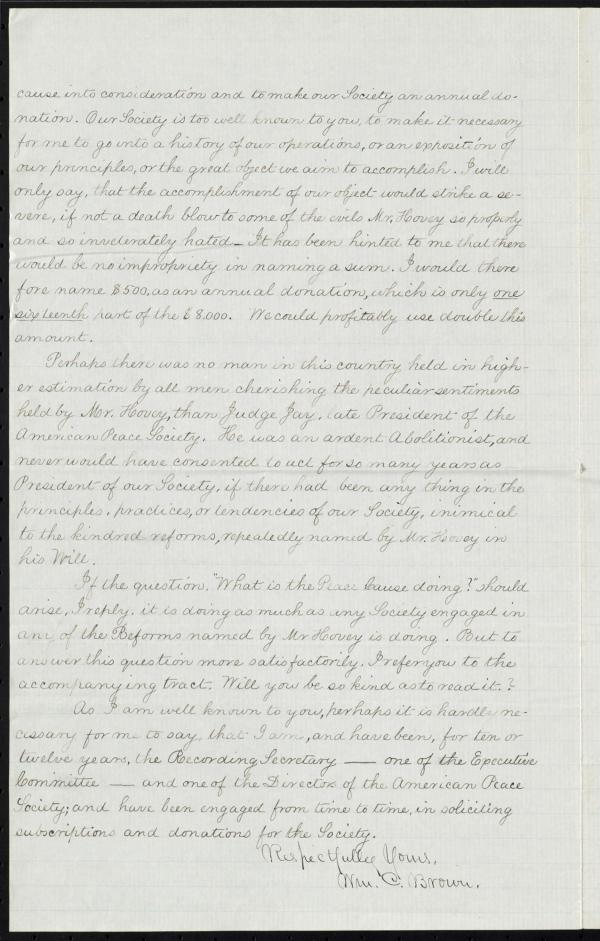 cause into consideration and to make our Society an annual do-
nation. Our Society is too well known to you, to make it necessary
for me to go into a history of our operations, or an exposition of
our principles, or the great object we aim to accomplish. I will
only say, that the accomplishment of our object would strike a se-
vere, if not a death blow to some of the evils Mr. Hovey so properly
and so inveterately hated — It has been hinted to me that there
would be no impropriety in naming a sum. I would there
fore name $500, as an annual donation, which is only one
sixteenth part of the $8,000. We could profitably use double this
amount.
Perhaps there was no man in this country held in high-
er estimation by all men cherishing the peculiar sentiments
held by Mr. Hovey, than Judge Jay, late President of the
American Peace Society. He was an ardent Abolitionist, and
never would have consented to act for so many years as
President of our Society, if there had been any thing in the
principles, practices, or tendencies of our Society, inimical
to the kindred reforms, repeatedly named by Mr. Hovey in
his Will.
If the question, "What is the Peace Cause doing?" should
arise, I reply, it is doing as much as any Society engaged in
any of the Reforms named by Mr Hovey is doing. But to
answer this question more satisfactorily, I refer you to the
accompanying tract. Will you be so kind as to read it.?
As I am well known to you, perhaps it is hardly ne-
cissary for me to say, that I am, and have been, for ten or
twelve years, the Recording Secretary — one of the Executive
Committie — and one of the Directors of the American Peace
Society; and have been engaged from time to time, in soliciting
subscriptions and donations for the Society.
Respectfully Yours,
Wm. C. Brown.